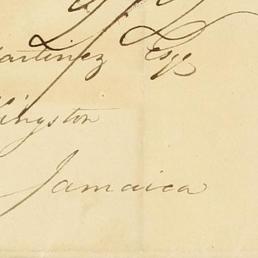 Martinez Esqe
Kingston
Jamaica